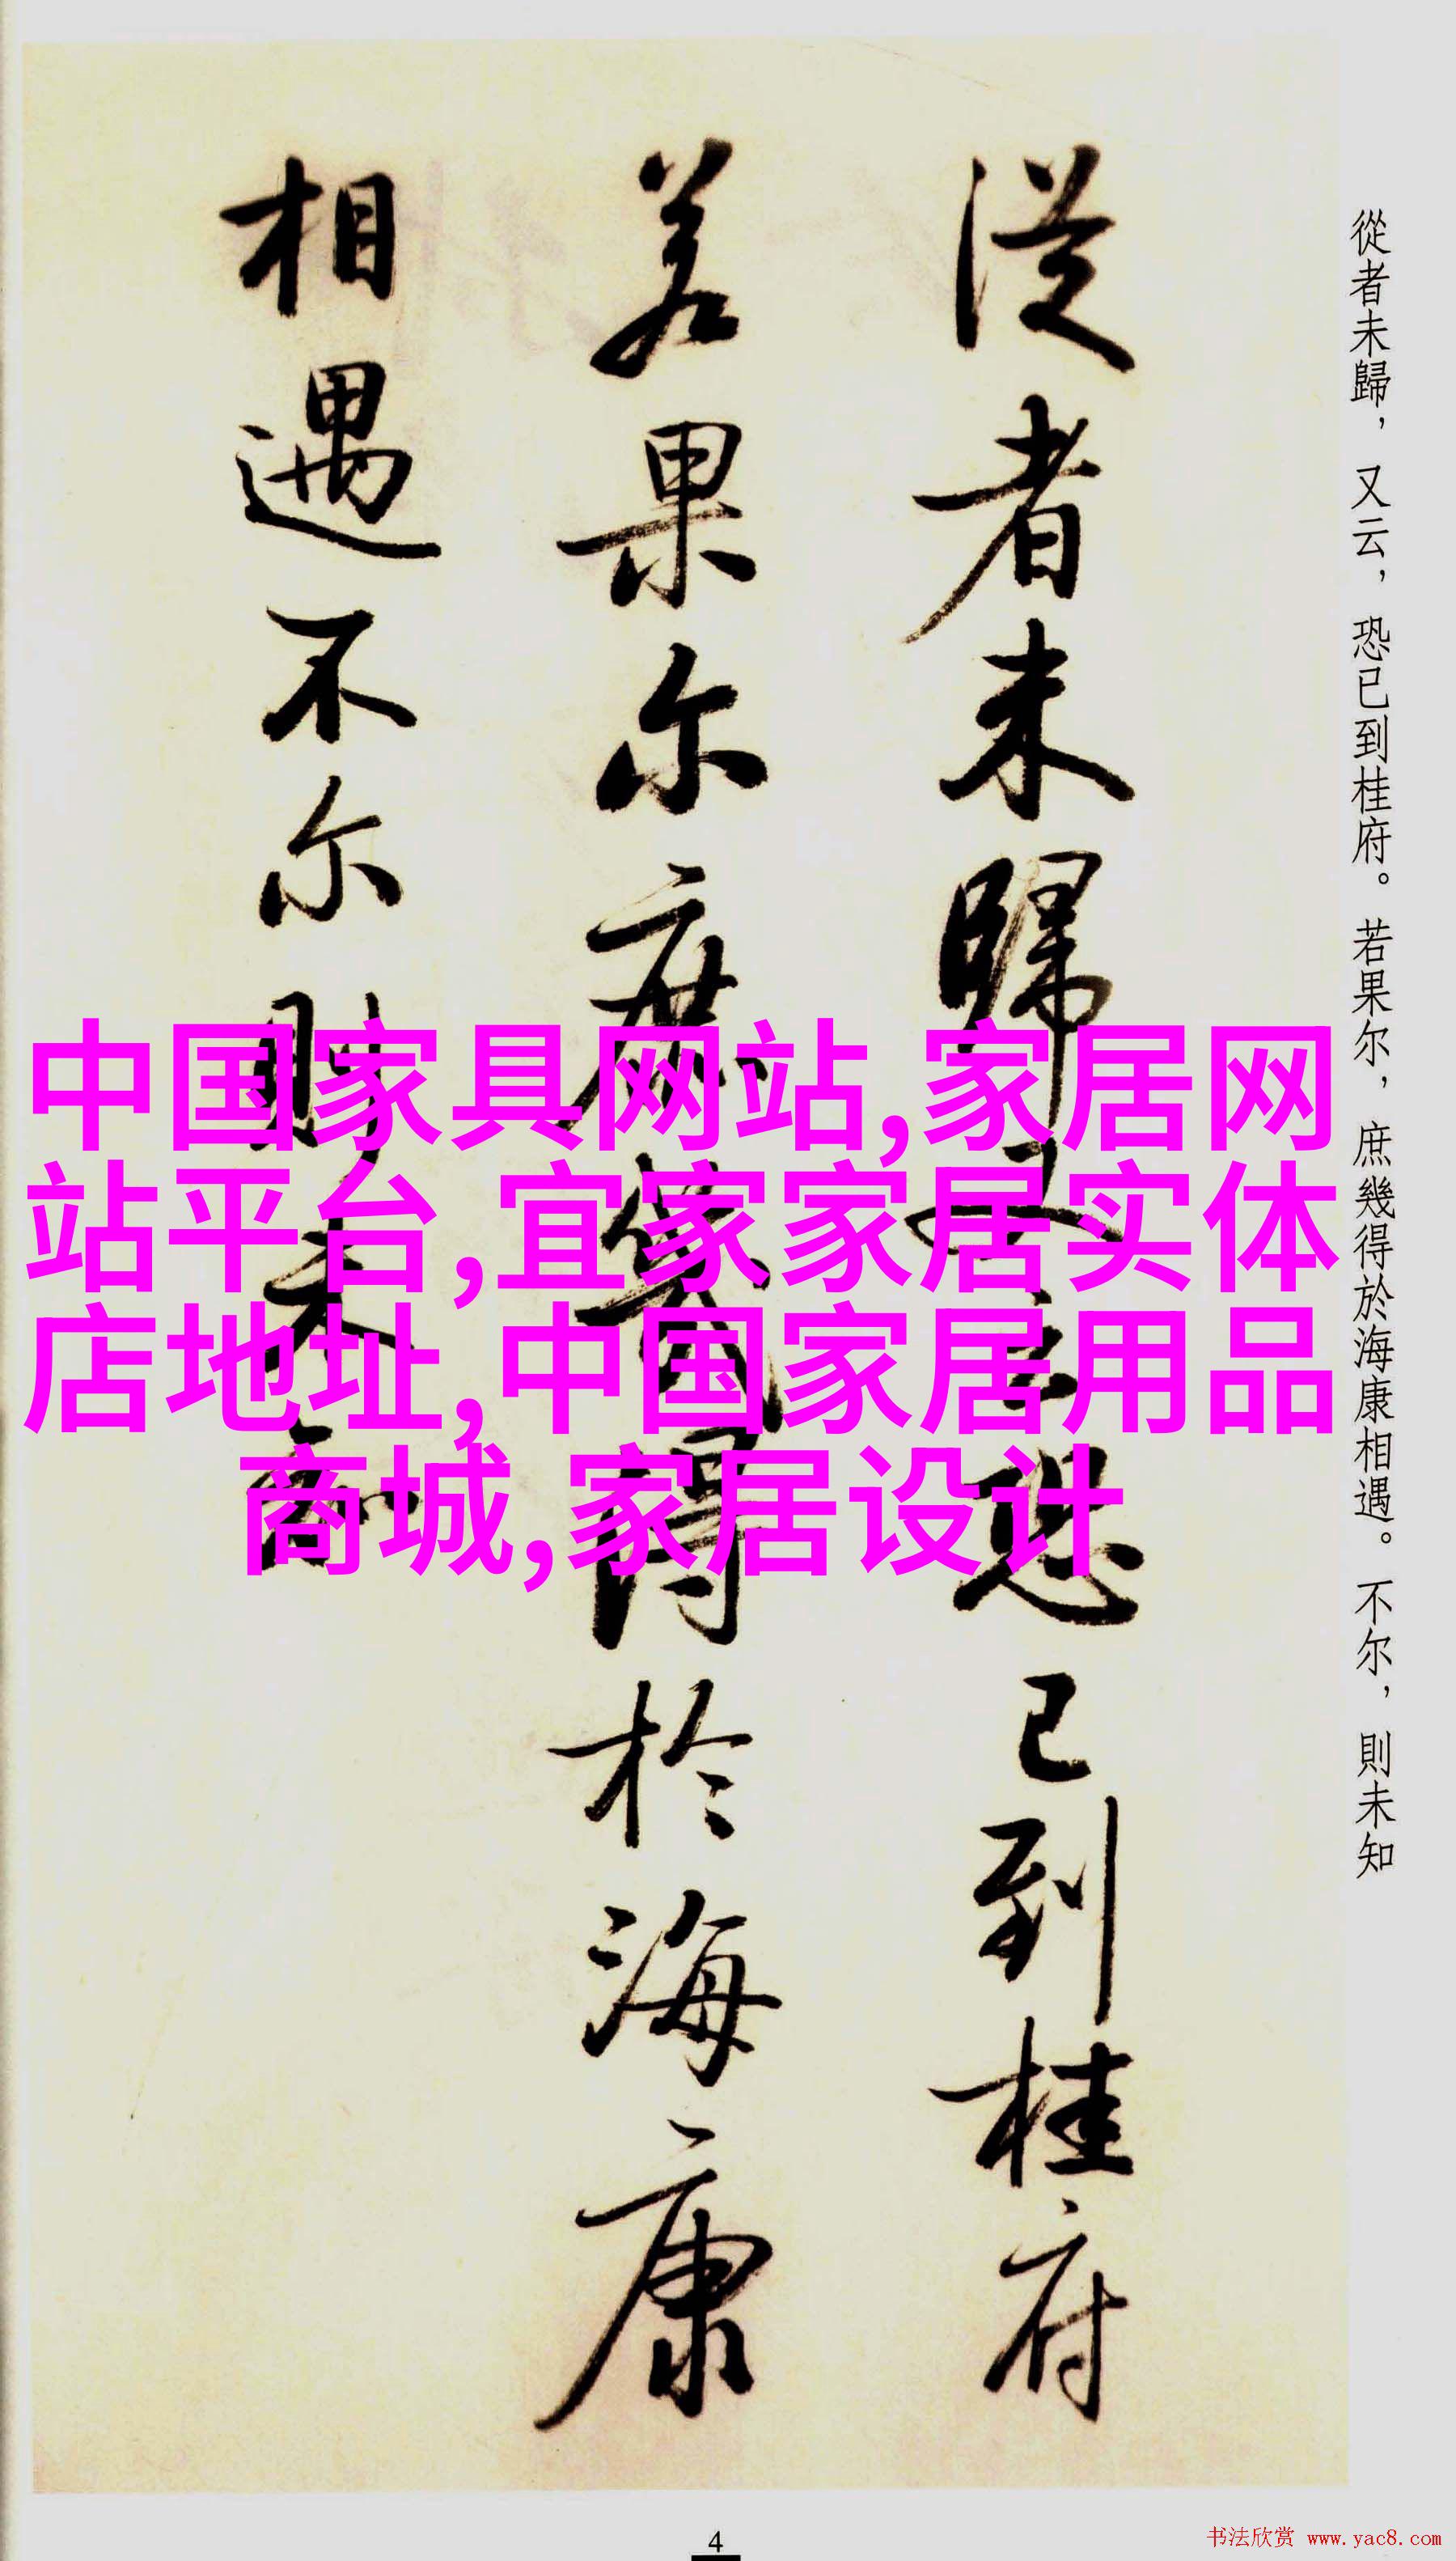 從者未歸，又云，恐已到桂府。若果尔，庶幾得於海康相遇。不尔，則未知
从者未歸又云恐已到桂府
若果尔庶幾得於海康
相遇不尔則未知
中国家具网站,家居网
站平台,宜家家居实体
店地址,中国家居用品
商城,家居设计
4
书法欣赏 www.yac8.com